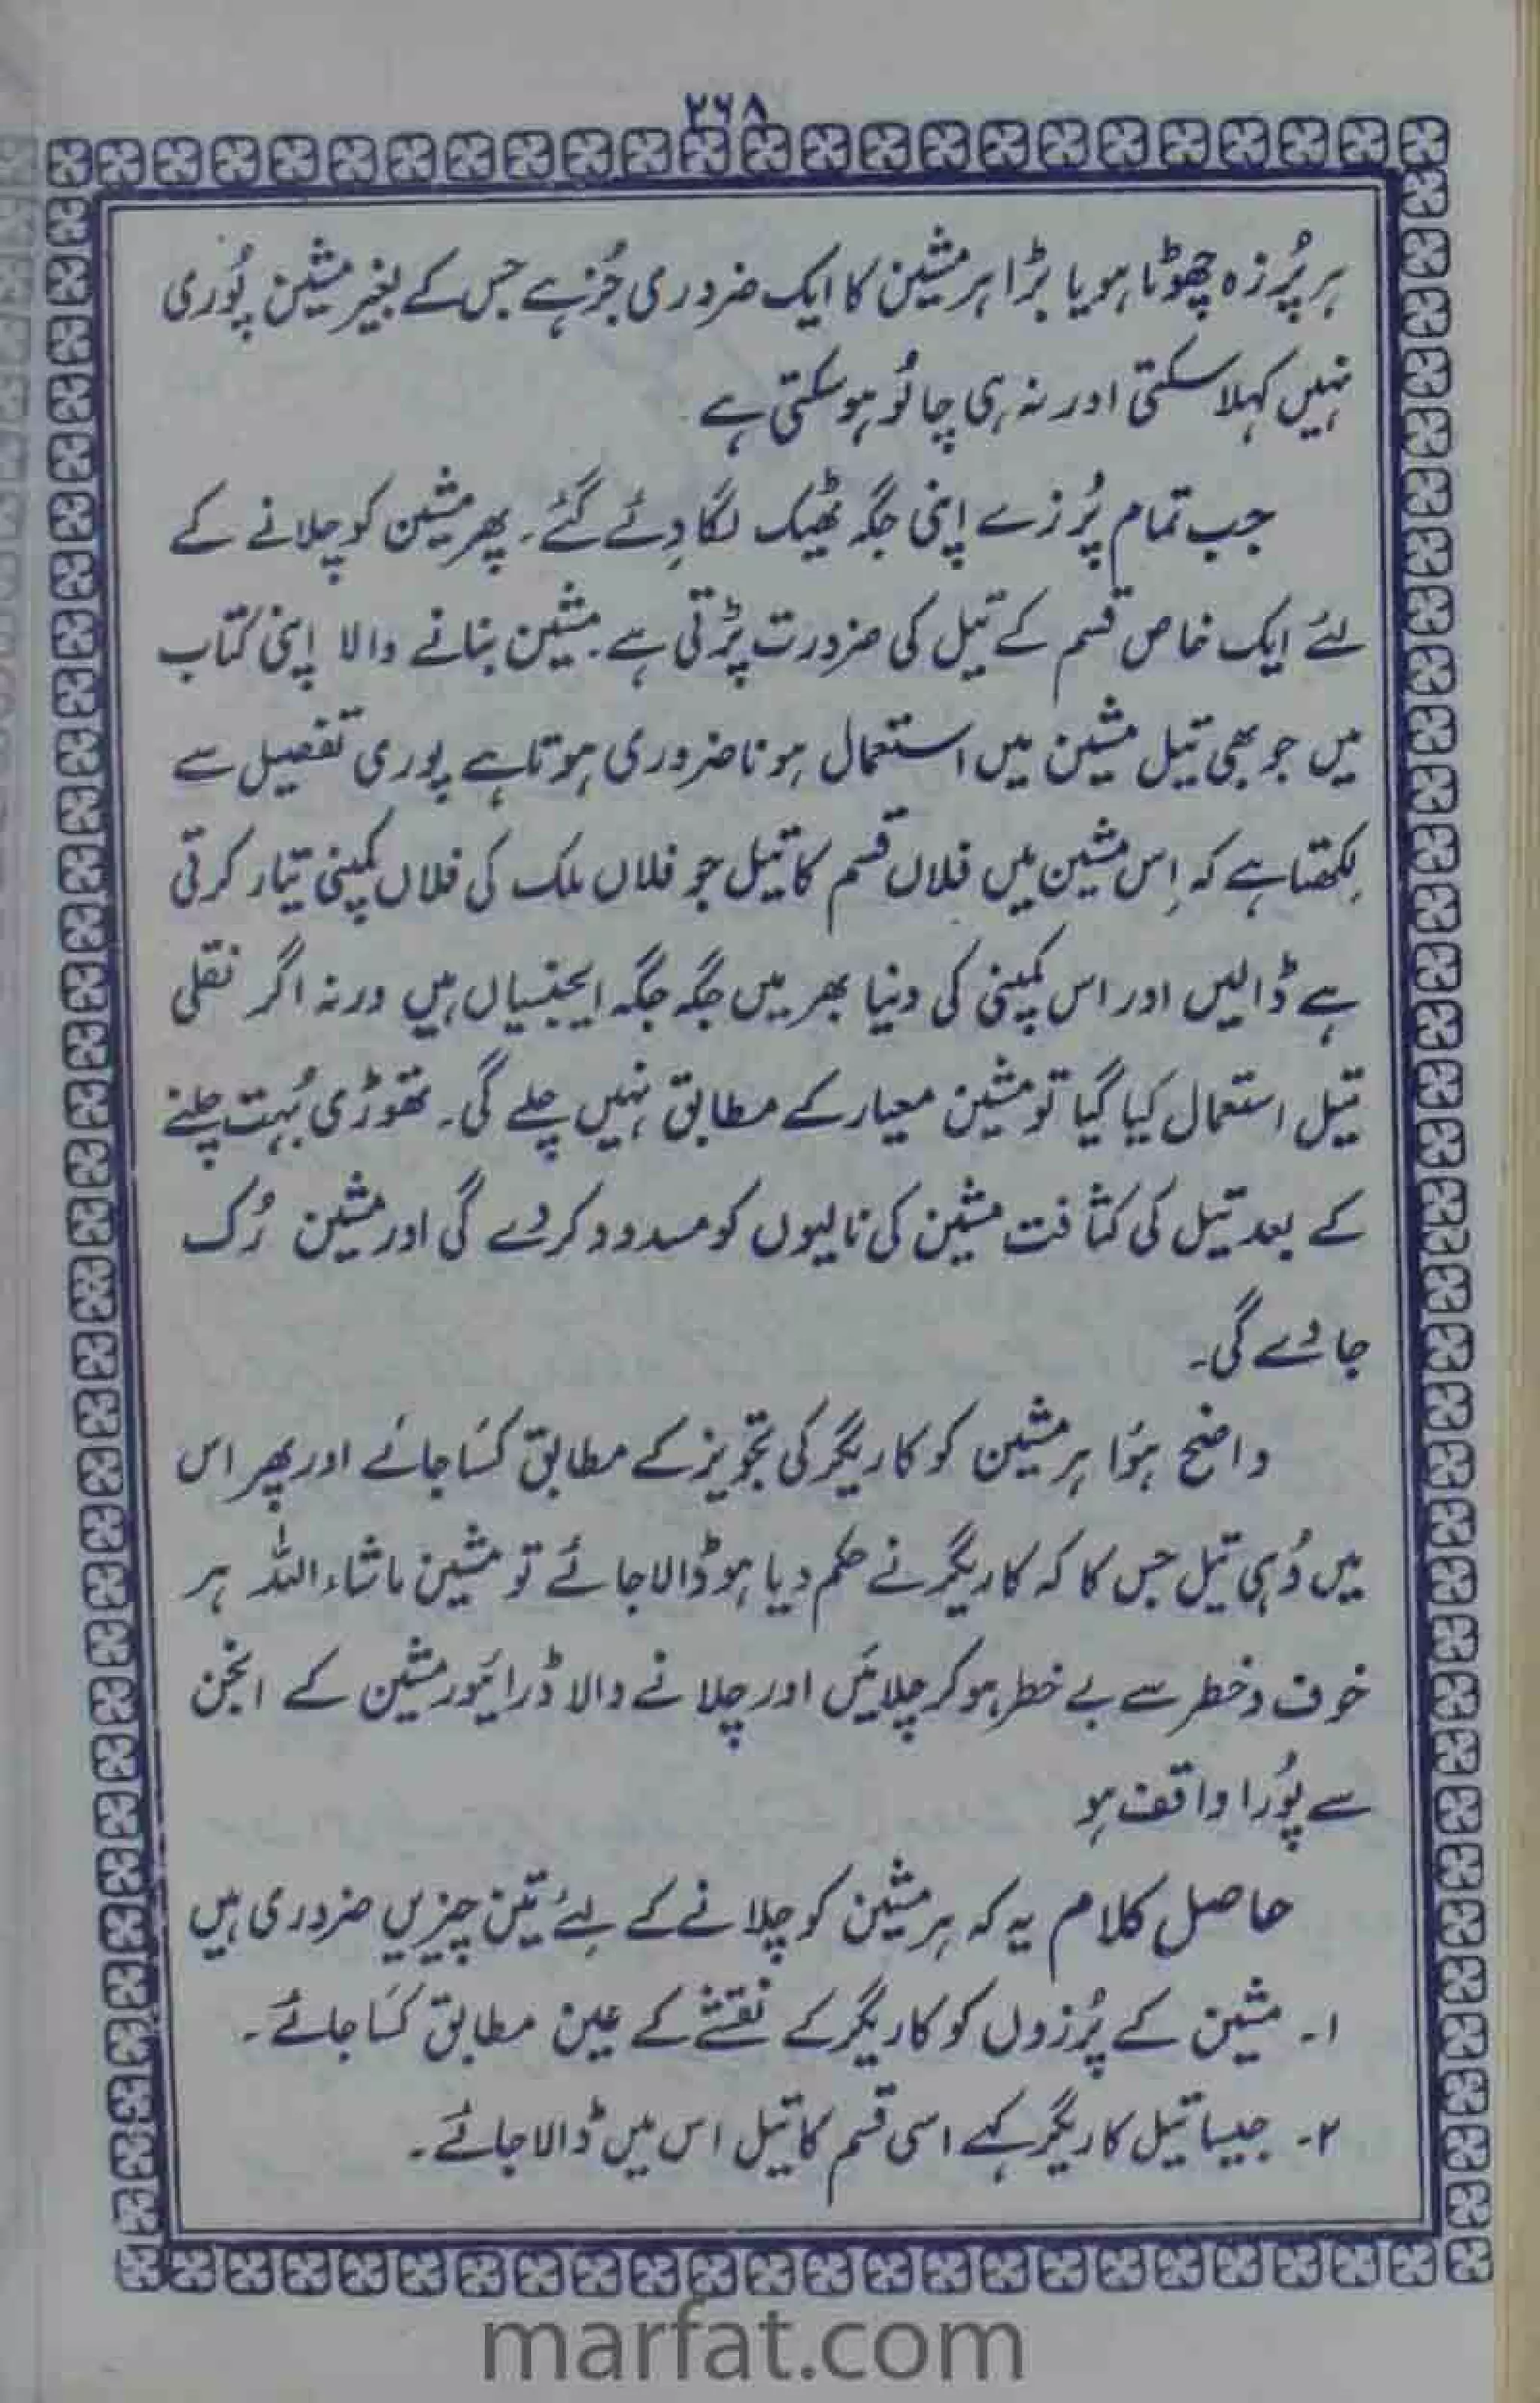 ۲۶۸
ہر پُرزہ چھوٹا ہو یا بڑا ہر مشین کا ایک ضروری جُز ہے جس کے بغیر مشین پُوری
نہیں کہلا سکتی اور نہ ہی چالُو ہو سکتی ہے
جب تمام پُرزے اپنی جگہ ٹھیک لگا دِئے گئے۔ پھر مشین کو چلانے کے
لئے ایک خاص قسم کے تیل کی ضرورت پڑتی ہے۔ مشین بنانے والا اپنی کتاب
میں جو بھی تیل مشین میں استعمال ہونا ضروری ہوتا ہے پوری تفصیل سے
لِکھتا ہے کہ اِس مشین میں فلاں قسم کا تیل جو فلاں ملک کی فلاں کمپنی تیار کرتی
ہے ڈالیں اور اس کمپنی کی دنیا بھر میں جگہ جگہ ایجنسیاں ہیں ورنہ اگر نقلی
تیل استعمال کیا گیا تو مشین معیار کے مطابق نہیں چلے گی۔ تھوڑی بُہت چلنے
کے بعد تیل کی کثافت مشین کی نالیوں کو مسدود کر دے گی اور مشین رُک
جاوے گی۔
واضح ہوُا ہر مشین کو کاریگر کی تجویز کے مطابق کسَا جائے اور پھر اس
میں وُہی تیل جس کا کہ کاریگر نے حکم دیا ہو ڈالا جائے تو مشین ماشاءاللہ ہر
خوف و خطر سے بے خطر ہو کر چلائیں اور چلانے والا ڈرائیور مشین کے انجن
سے پُورا واقف ہو
حاصل کلام یہ کہ ہر مشین کو چلانے کے لئے تین چیزیں ضروری ہیں
۱۔ مشین کے پُرزوں کو کاریگر کے نقشے کے عین مطابق کسَا جائے۔
۲۔ جیسا تیل کاریگر کہے اسی قسم کا تیل اس میں ڈالا جائے۔
marfat.com